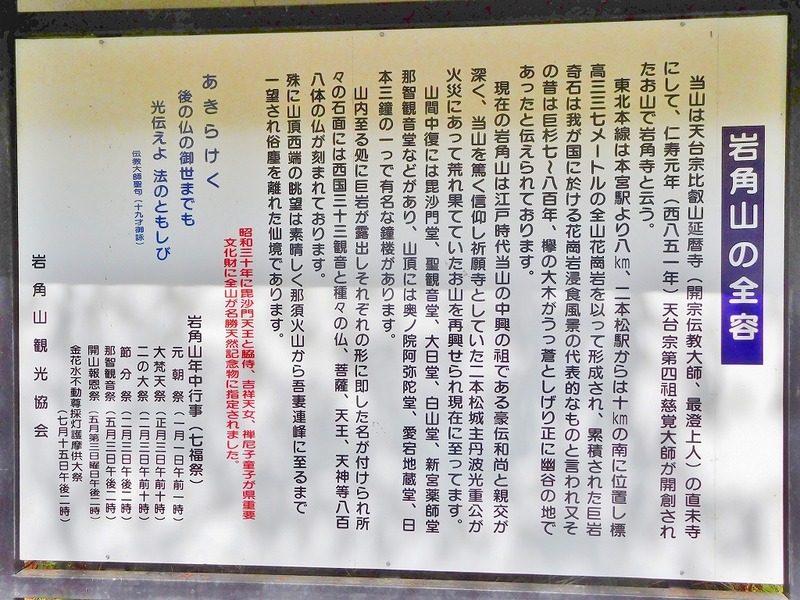 岩角山の全容
当山は天台宗比叡山延暦寺（開宗伝教大師、最澄上人）の直末寺
にして、仁寿元年（西八五一年）天台宗第四祖慈覚大師が開創され
たお山で岩角寺と云う。
東北本線は本宮駅より八㎞、二本松駅からは十㎞の南に位置し標
高三三七メートルの全山花崗岩を以って形成され、累積された巨岩
奇石は我が国に於ける花崗岩浸食風景の代表的なものと言われ又そ
の昔は巨杉七〜八百年、欅の大木がうっ蒼としげり正に幽谷の地で
あったと伝えられております。
現在の岩角山は江戸時代当山の中興の祖である豪伝和尚と親交が
深く、当山を篤く信仰し祈願寺としていた二本松城主丹波光重公が
火災にあって荒れ果てていたお山を再興せられ現在に至ってます。
山間中復には毘沙門堂、聖観音堂、大日堂、白山堂、新宮薬師堂
那智観音堂などがあり、山頂には奥ノ院阿弥陀堂、愛宕地蔵堂、日
本三鐘の一つで有名な鐘楼があります。
山内至る処に巨岩が露出しそれぞれの形に即した名が付けられ所
々の石面には西国三十三観音と種々の仏、菩薩、天王、天神等八百
八体の仏が刻まれております。
殊に山頂西端の眺望は素晴しく那須火山から吾妻連峰に至るまで
一望され俗塵を離れた仙境であります。
昭和三十年に毘沙門天王と脇侍、吉祥天女、禅尼子童子が県重要
文化財に全山が名勝天然記念物に指定されました。
あきらけく
後の仏の御世までも
光伝えよ 法のともしび
伝教大師聖句（十九才御詠）
岩角山年中行事（七福祭）
元朝祭（一月一日午前一時）
大梵天祭（正月三日午前十時）
二の大祭（二月三日午前十時）
節分祭（二月三日午後二時）
那智観音祭（五月三日午後二時）
開山報恩祭（五月第三日曜日午後二時）
金花水不動尊採灯護摩供大祭
（七月十五日午後二時）
岩角山観光協会